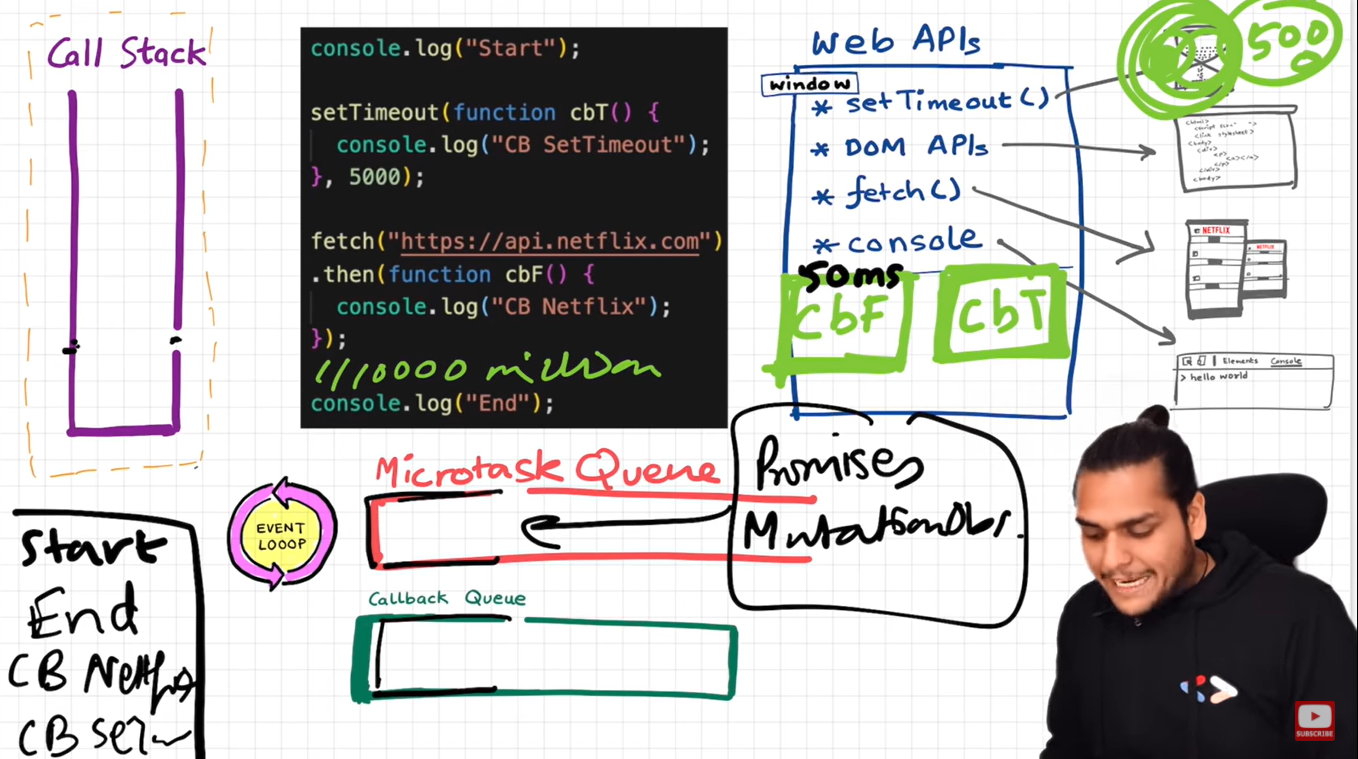 Call Stack
console.log("Start");
setTimeout(function cbT() {
console.log("CB SetTimeout");
}, 5000);
fetch("https://api.netflix.com")
.then(function cbF() {
console.log("CB Netflix");
});
1110000 million
console.log("End");
Web APIs
window
* setTimeout()
* DOM APIs
* fetch()
* console
50ms
CbF
CbT
5000
<body>
<div>
<body>
NETFLIX
NETFLIX
Elements Console
> hello world
Microtask Queue
Promises
MutationObs.
EVENT
LOOOP
Callback Queue
Start
End
CB Netflix
CB SeT
SUBSCRIBE